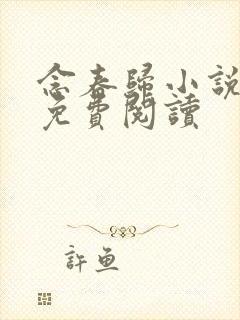 念春歸小說
免費閱讀
許魚